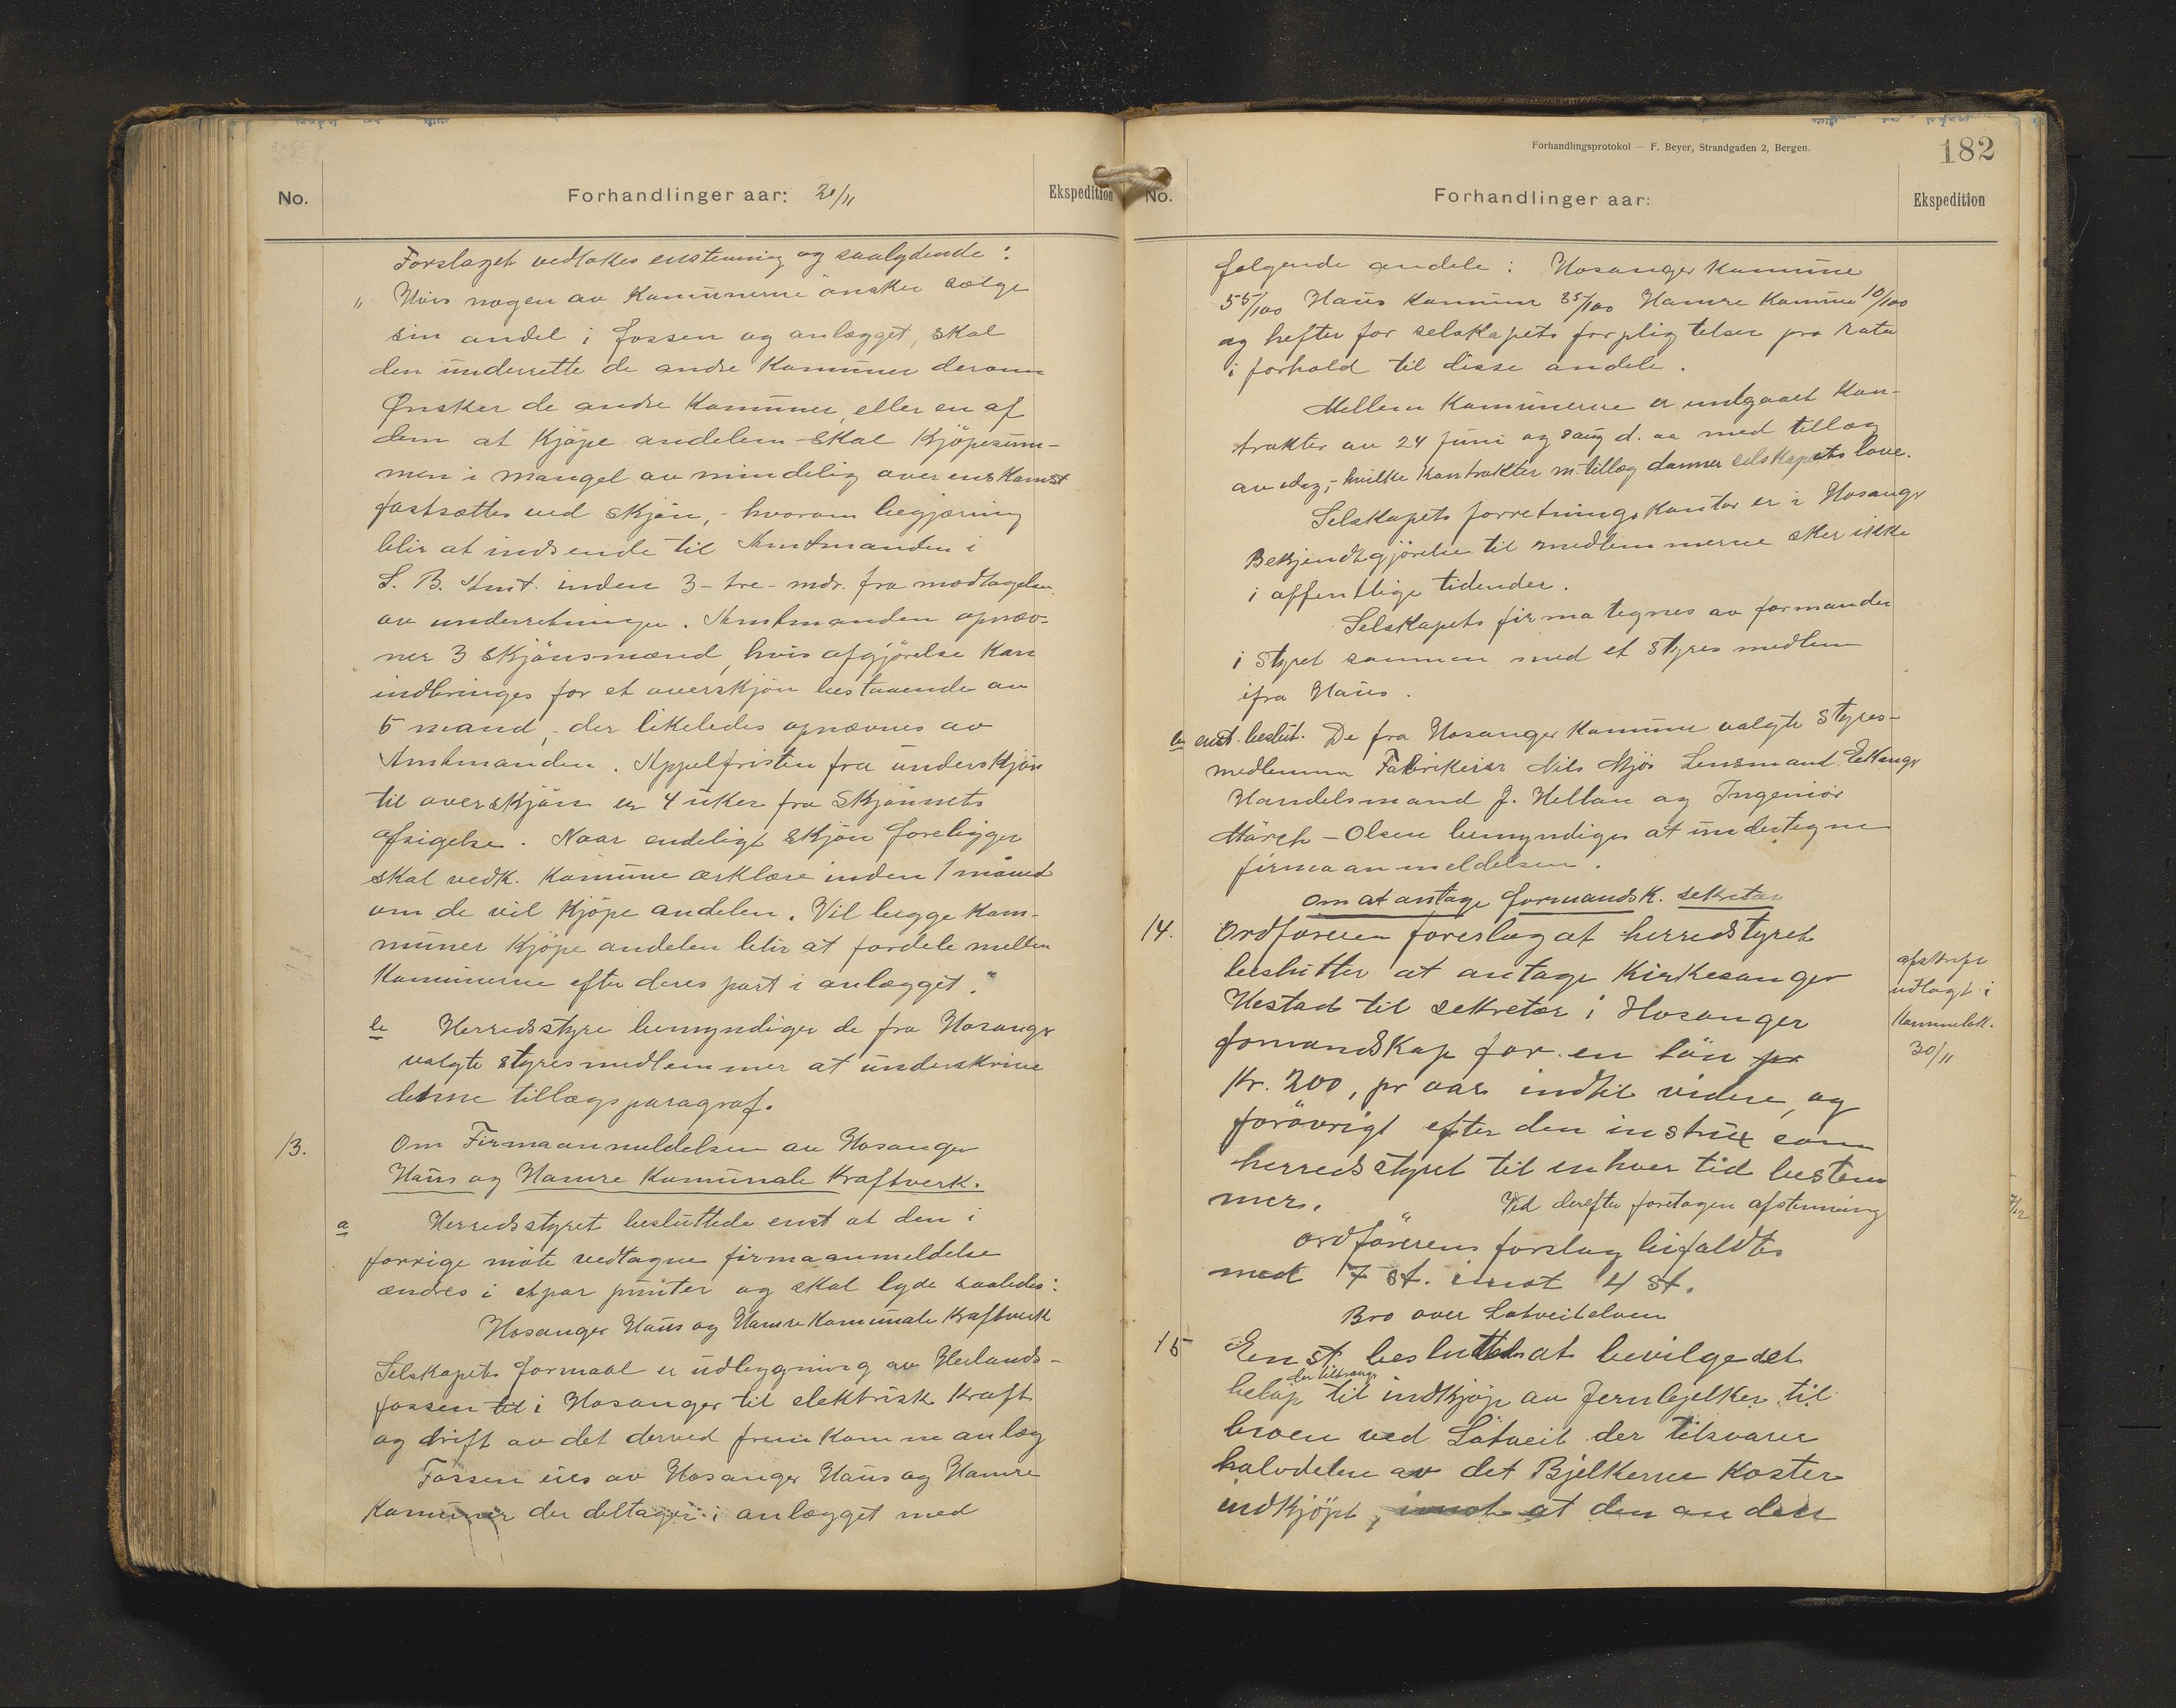 No.
Forhandlinger aar: 20/11
Ekspedition
Forslaget vedtokes enstemmig og saalydende:
" Hvis nogen av Kommunerne ønsker sælge
sin andel i fossen og anlægget, skal
den underrette de andre Kommuner derom
Ønsker de andre Kommuner, eller en af
dem at Kjøpe andelen skal Kjøpesum-
men i mangel av mindelig overenskomst
fastsættes ved skjøn, - hvorom begjæring
blir at indsende til Amtmanden i
S. B. Amt. inden 3 - tre - mdr. fra modtagelsen
av underretningen. Amtmanden opnæv-
ner 3 Skjønsmænd, hvis afgjørelse kan
indbringes for et overskjøn bestaaende av
5 mand, - der likeledes opnævnes av
Amtmanden. Appelfristen fra underskjøn
til overskjøn er 4 uker fra Skjønnets
afsigelse. Naar endeligt skjøn foreligger
skal vedk. Kommune erklære inden 1 måned
om de vil Kjøpe andelen. Vil begge Kom-
muner Kjøpe andelen blir at fordele mellem
Kommunerne efter deres part i anlægget."
b Herredsstyre bemyndiger de fra Hosanger
valgte styresmedlemmer at underskrive
denne tillægsparagraf.
13.
Om Firmaanmeldelsen av Hosanger
Haus og Hamre Kommunale Kraftverk.
a Herredsstyret besluttede enst at den i
forrige møte vedtagne firmaanmeldelse
ændres i et par punkter og skal lyde saaledes:
Hosanger Haus og Hamre Kommunale Kraftverk
Selskapets formaal er udbygning av Herlands-
fossen til i Hosanger til elektrisk Kraft
og drift av det derved fremkomne anlæg
Fossen eies av Hosanger Haus og Hamre
Kommuner der deltager i anlægget med
Forhandlingsprotokol — F. Beyer, Strandgaden 2, Bergen.
182
No.
Forhandlinger aar:
Ekspedition
følgende andele: Hosanger Kommune
55/100 Haus Kommune 35/100 Hamre Kommune 10/100
og hefter for selskapets forpligtelser pro rata
i forhold til disse andele.
Mellem Kommunerne er indgaaet Kon-
trakter av 24 juni og 8 aug d. aa med tillæg
av idag, - hvilke Kontrakter m. tillæg danner selskapets love.
Selskapets forretningskontor er i Hosanger
Bekjendtgjørelse til medlemmerne sker ikke
i offentlige tidender.
Selskapets firma tegnes av formanden
i styret sammen med et styres medlem
ifra Haus.
b enst. beslut. De fra Hosanger Kommune valgte styres-
medlemmer Fabrikeier Nils Mjøs Lensmand Eikanger
Handelsmand J. Hellan og Ingeniør
March-Olsen bemyndiges at undertegne
firmaanmeldelsen.
Om at antage formandsk. sekretær
14.
Ordføreren foreslog at herredstyret
beslutter at antage Kirkesanger
Hestad til sekretær i Hosanger
formandskap for en løn pr
Kr. 200, pr aar indtil videre, og
forøvrigt efter den instrux som
herredsstyret til enhver tid bestem
mer.
Ved derefter foretagen afstemning
ordførerens forslag bifaldtes
med 7 st. imot 4 st.
afskrift
udlagt i
30/11
7/12
Bro over Lotveitelven
15
Enst. besluttedes at bevilge det
der tiltrænges
beløp til indkjøp av Jernbjelker til
broen ved Løtveit der tilsvarer
halvdelen av det Bjelkerne Koster
indkjøpt, imot at den anden